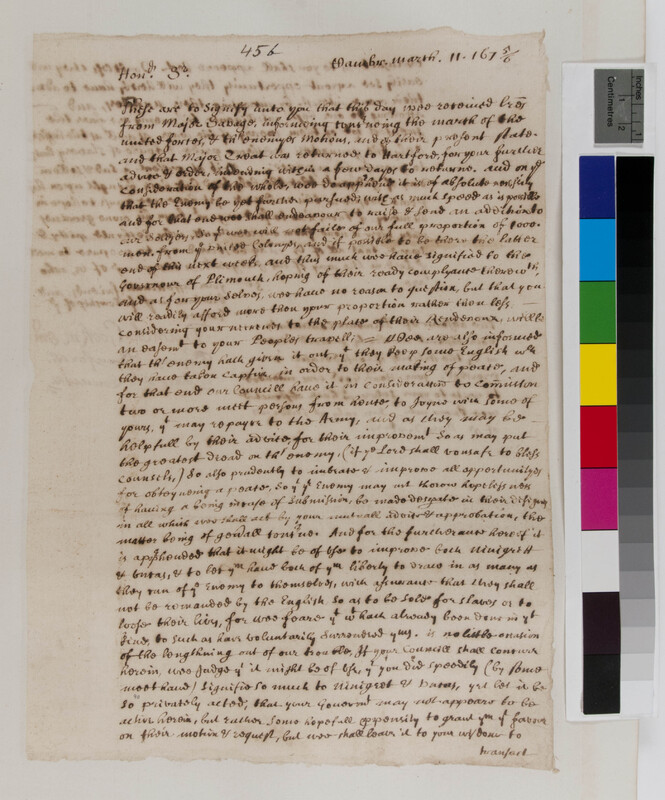 456
Cambr. march. 11. 167 5/6
Hond. Sr.
These are to signify unto you that this day wee received Lrs
from Major Savage, informing concerning the march of the
united forces, & th enemyes Motions, and of their present state
and that Major Treat was returned to Hartford, for your further
advice & order, intending within a few days to returne. And on ye
Consideration of the whole, wee do apprhend it is of absolute necessity
that the Enemy be yet further persued, with as much speed as is possible
and for that end wee shall endeavour to raise & send an addition to
our Soldiers, So yt wee will not faile of our full proportion of 1000
men from ye united Colonyes, and if possible to be there the latter
end of this next week. and thus much wee have signified to the
Governour of Plimouth, hoping of their ready complyance therewth,
and as for your selves, wee have no reason to question, but that you
will readily afford more then your proportion rather then less,
Considering your nearenes to the place of their Rendevoux, willbe
an easemt to your Peoples travell; Wee are also informed
that th enemy hath given it out, yt they keep some English wch
they have taken Captive, in order to their making of peace, and
for that end our Councill have it in Consideration to Comission
two or more meet persons from hence to Joyne with some of
yours, yt may repayre to the Army, and as they may be
helpfull by their advice, for their improvemt So as may put
the greatest dread on th enemy, (if ye Lord shall vousafe to bless
Counsels,) So also prudently to imbrace & improve all opportunityes
for obteyneing a peace, So yt ye Enemy may not throw hopelesnes
of haveing a being in case of Submission, be made desperate in their designes
in all which wee shall act by your mutuall advice & approbation, the
matter being of genrall concrne. And for the furtherance hereof it
is apprhended that it might be of Use to improve both Ninigrett
& Uncas, & to let ym have both of ym liberty to draw in as many as
they can of ye Enemy to themselves, with assurance that they shall
not be remanded by the English So as to be Sold for slaves or to
loose their lives, for wee feare yt wt hath already been done in yt
kind, to such as have voluntarily surrendred yms. is no little ocasion
of the lengthning out of our trouble, If your Councill shall concurr
herein, wee Judge yt it might be of Use, yt you did speedily (by some
meet hand) Signifie so much to Ninigret & Uncas, yet let it be
So privately acted, that your Governmt may not appeare to be
active herein, but rather some hopefull propensity to grant ym ye favour
on their motion & request, but wee shall leave it to your wisdome to
transact